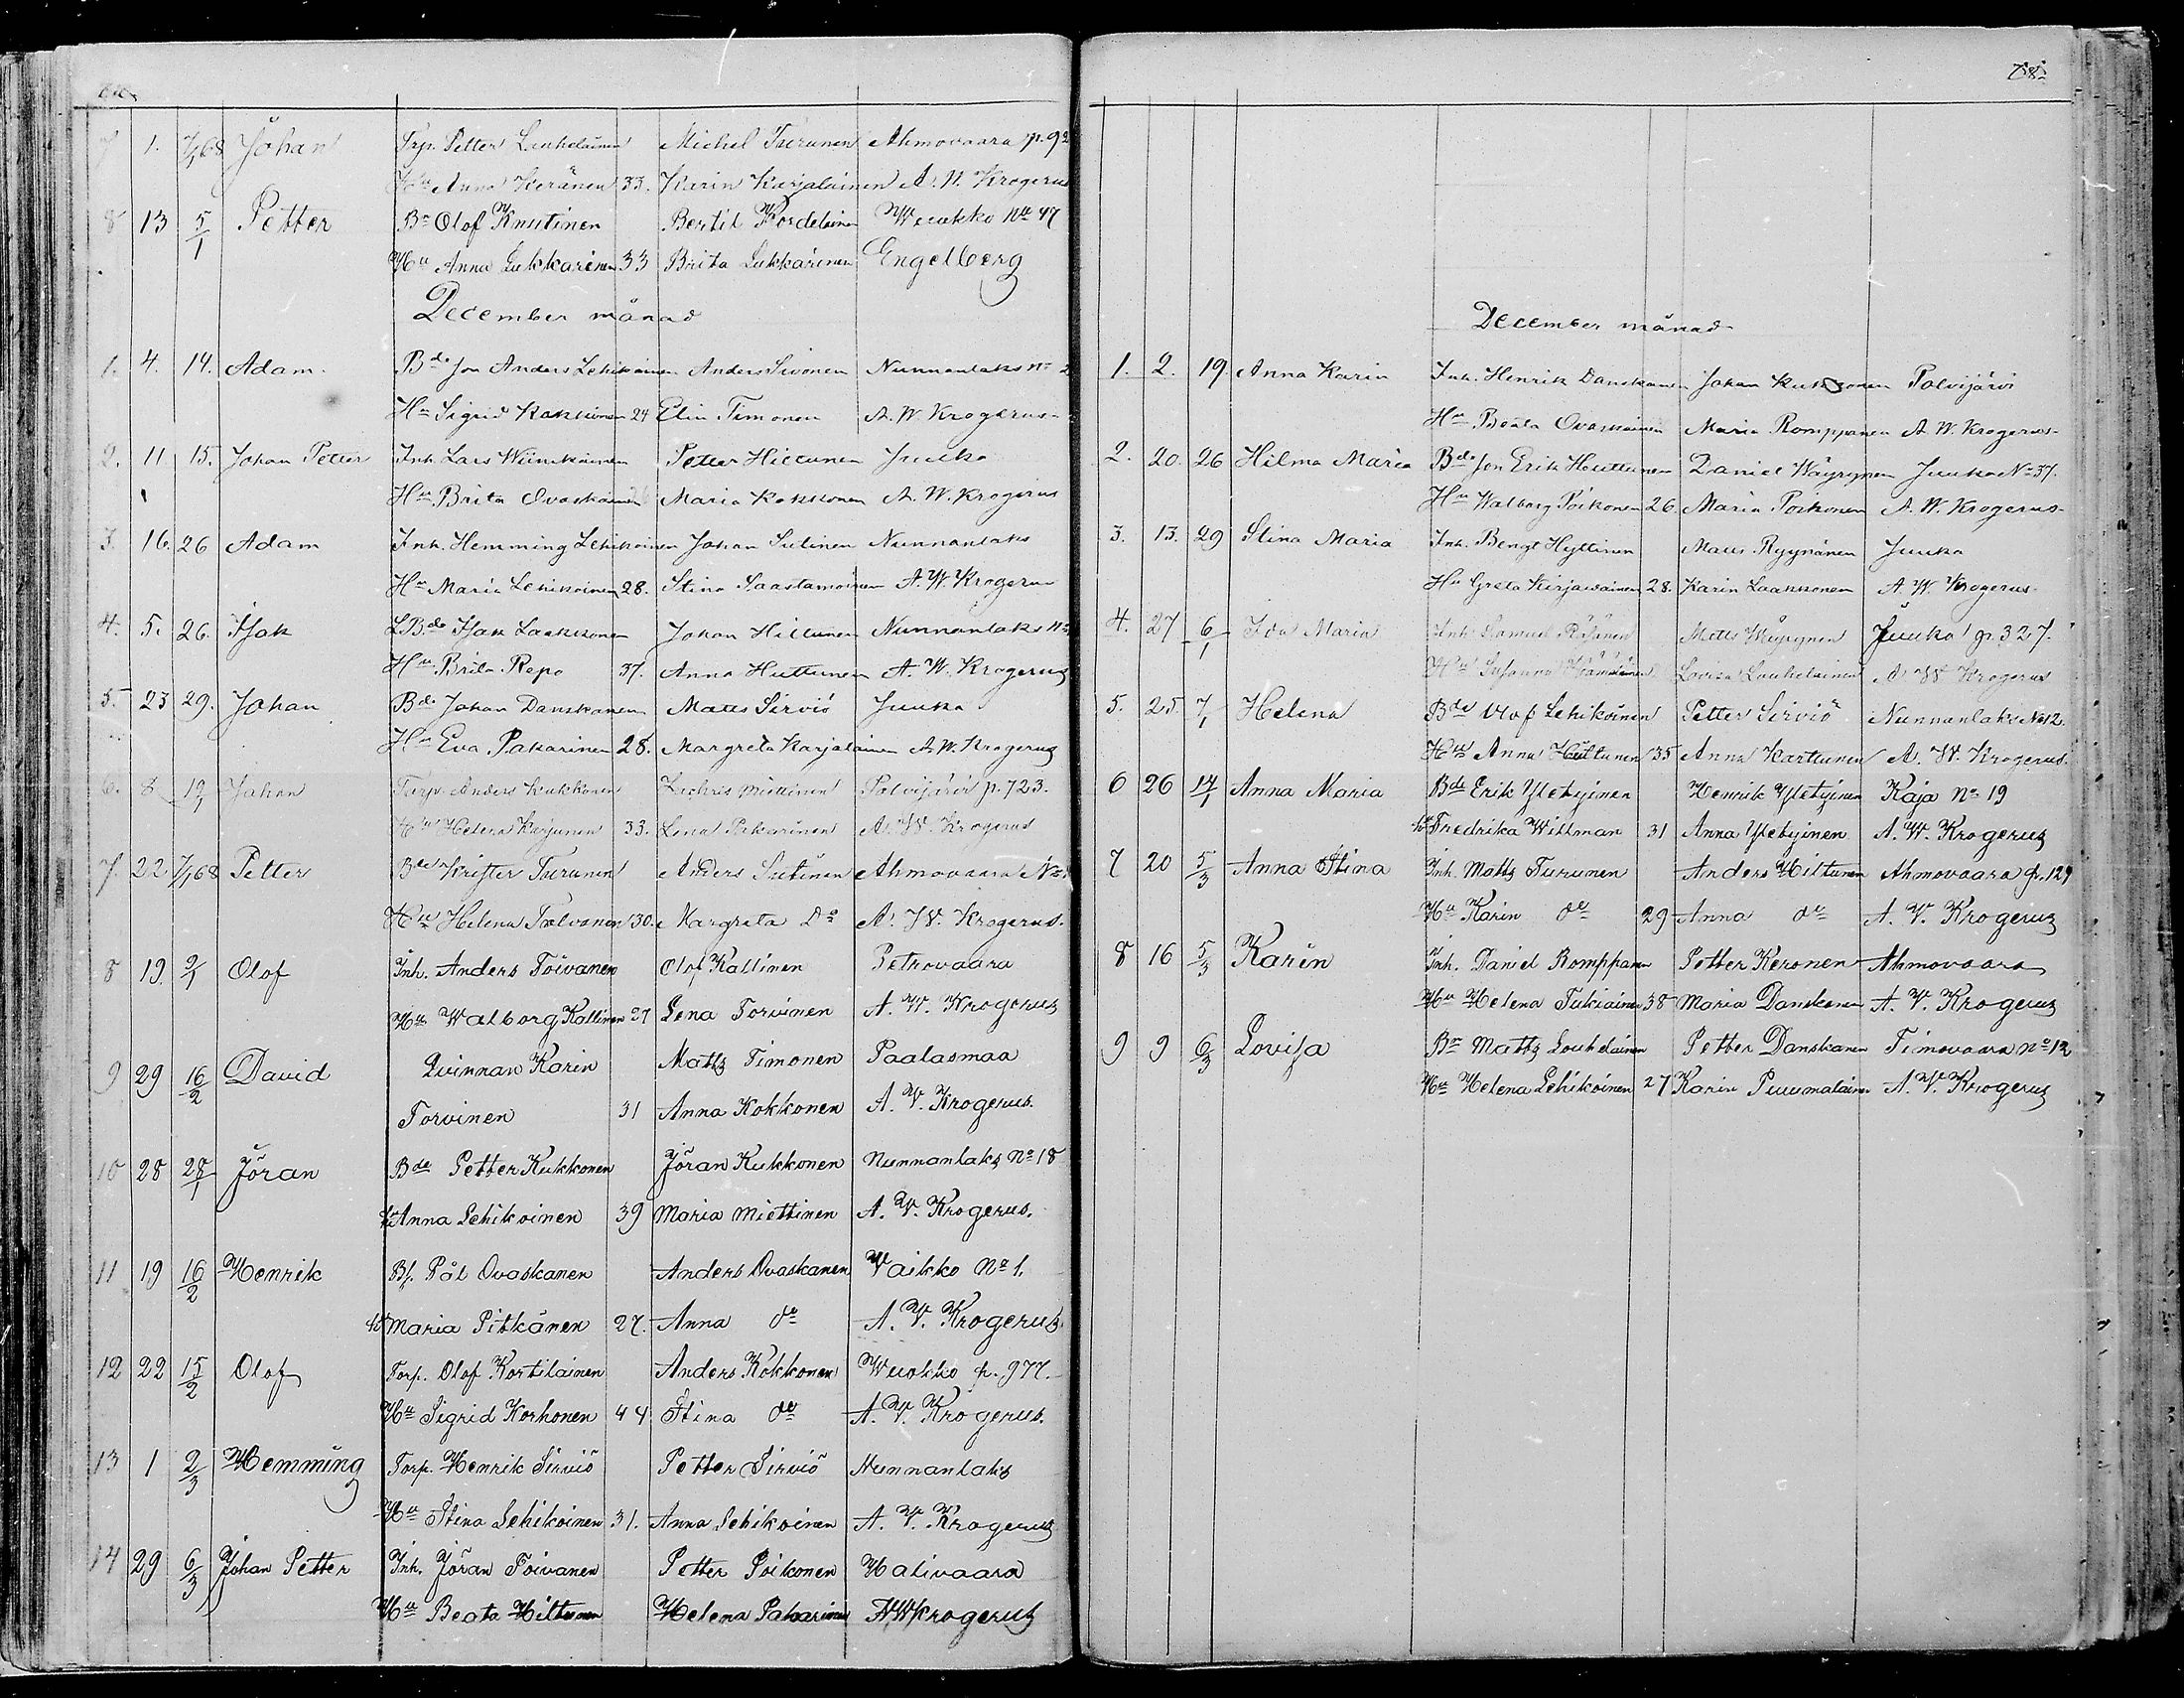 7 1. 7/1 68 Johan Trp. Petter Louhelainen Michel Turunen Ahmovaara p. 92
Hu Anna Keränen 33. Karin Karjalainen A. W. Krogerus
8 13 5/1 Petter Bn Olof Knutinen Bertil Kordelainen Wuokko No 47
Hu Anna Lukkarinen 33 Brita Lukkarinen Engelberg
December månad
1. 4. 14. Adam. Bde Son Anders Lehikoinen Anders Sivonen Nunnanlaks No 2
Hu Sigrid Kokkonen 24 Elin Timonen A. W. Krogerus
2. 11 15. Johan Petter Inh. Lars Wiinikainen Petter Hiltunen Juuka
Hu Brita Ovaskainen 26 Maria Kokkonen A. W. Krogerus
3. 16. 26 Adam Inh. Hemming Lehikoinen Johan Sutinen Nunnanlaks
Hu Maria Lehikoinen 28. Stina Saastamoinen A. W. Krogerus
4. 5. 26. Isak LBde Isak Laakkonen Johan Hiltunen Nunnanlaks No
Hu Brita Repo 37. Anna Huttunen A. W. Krogerus
5. 23 29. Johan Bde Johan Danskanen Matts Sirviö Juuka
Hu Eva Pakarinen 28. Margreta Karjalainen A. W. Krogerus
6. 8 19/1 Johan Torp. Anders Kukkonen Zachris Miettinen Polvijärvi p. 723.
Hu Helena Karjunen 33. Lena Pakarinen A. W. Krogerus
7. 22. 7/1 68 Petter Bde Krister Turunen Anders Sutinen Ahmovaara No
Hu Helena Tolvanen 30. Margreta Do A. W. Krogerus.
8 19. 9/1 Olof Inh. Anders Toivanen Olof Kallinen Petrovaara
Hu Walborg Kallinen 27 Lena Torvinen A. W. Krogerus
9 29 16/2 David Qvinnan Karin Matts Timonen Paalasmaa
Torvinen 31 Anna Kokkonen A. V. Krogerus.
10 28 28/1 Jöran Bde Petter Kukkonen Jöran Kukkonen Nunnanlaks No 18
Hu Anna Lehikoinen 39 Maria Miettinen A. V. Krogerus.
11 19 16/2 Henrik Bf. Pål Ovaskanen Anders Ovaskanen Vaikko No 1.
Hu Maria Pitkänen 27. Anna do A. V. Krogerus
12 22 15/2 Olof Torp. Olof Kortilainen Anders Kokkonen Wuokko p. 977.
Hu Sigrid Korhonen 44 Stina do A. V. Krogerus.
13 1 2/3 Hemming Torp. Henrik Sirviö Petter Sirviö Nunnanlaks
Hu Stina Lehikoinen 31. Anna Lehikoinen A. V. Krogerus
14 29 6/3 Johan Petter Inh. Jöran Toivanen Petter Poikonen Halivaara
Hu Beata Hiltunen Helena Pakarinen AWKrogerus
December månad
1. 2. 19. Anna Karin Inh. Henrik Danskanen Johan Kukkonen Polvijärvi
Hu Beata Ovaskainen Maria Romppanen A. W. Krogerus
2. 20. 26 Hilma Maria Bde Son Erik Huttunen Daniel Wäyrynen Juuka No 37.
Hu Walborg Poikonen 26. Maria Poikonen A. W. Krogerus
3. 13. 29 Stina Maria Inh. Bengt Hyttinen Matts Ryynänen Juuka
Hu Greta Kirjavainen 28. Karin Laakkonen A. W. Krogerus
4. 27 6/1 Ida Maria Inh. Samuel Räsänen Matts Wäyrynen Juuka p. 327.
Hu Susanna Hämäläinen Lovisa Louhelainen A. W. Krogerus
5. 25. 7/1 Helena Bde Olof Lehikoinen Petter Sirviö Nunnanlaks No 12.
Hu Anna Huttunen 35 Anna Karttunen A. W. Krogerus.
6 26 14/1 Anna Maria Bde Erik Yletyinen Henrik Yletyinen Kaja No 19
Hu Fredrika Willman 31 Anna Yletyinen A. W. Krogerus
7 20 5/3 Anna Stina Inh. Matts Turunen Anders Hiltunen Ahmovaara p. 129
Hu Karin do 29 Anna do A. V. Krogerus
8 16 5/3 Karin Inh. Daniel Romppanen Petter Keronen Ahmovaara
Hu Helena Tukiainen 38 Maria Danskanen A. V. Krogerus
9 9 6/3 Lovisa Bn Matts Louhelainen Petter Danskanen Timovaara No 12
Hu Helena Lehikoinen 27 Karin Puumalainen A. V. Krogerus